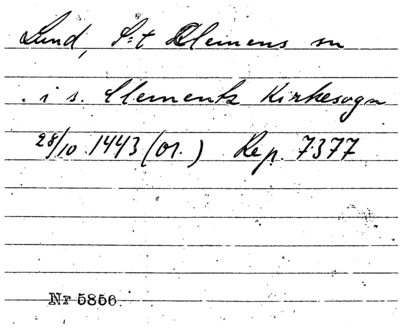 Lund, S:t Clemens sn
i s. Clementz Kirkesogn
28/10 1443 (or.) Rep. 7377
Nr 5856